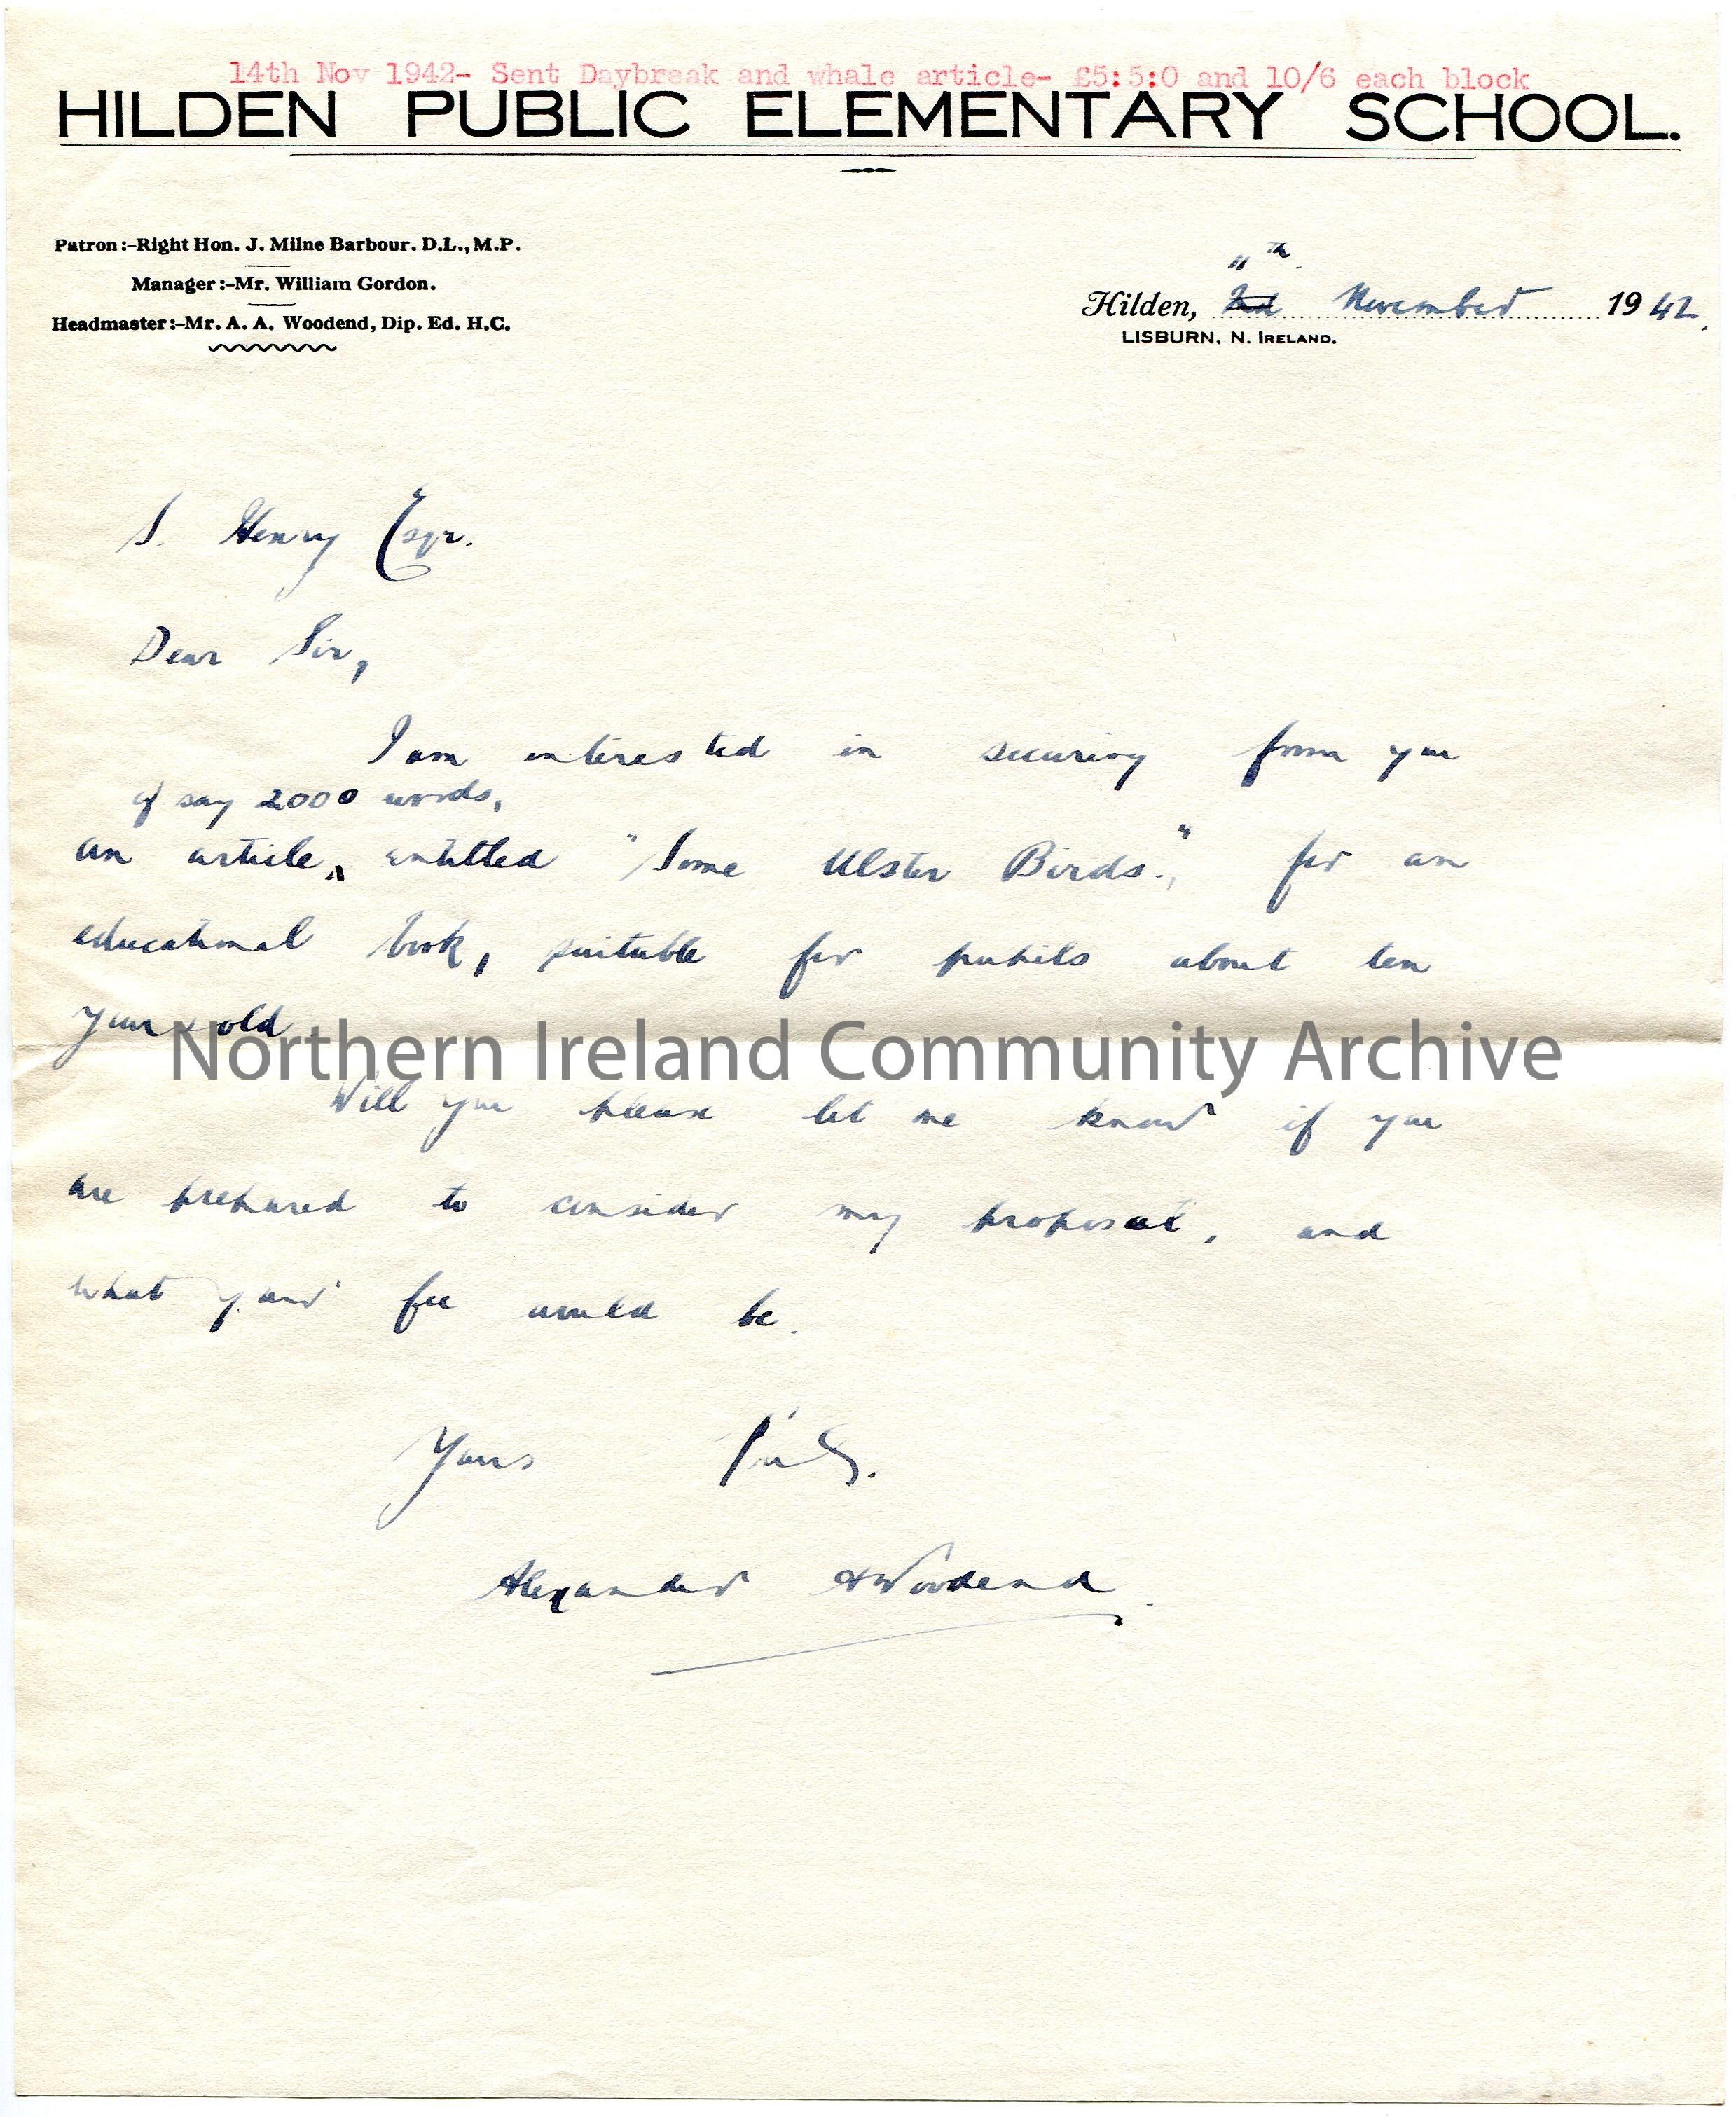 14th Nov 1942- Sent Daybreak and whale article- £5:5:0 and 10/6 each block
HILDEN PUBLIC ELEMENTARY SCHOOL.
Patron:-Right Hon. J. Milne Barbour. D.L., M.P.
Manager:-Mr. William Gordon.
Headmaster:-Mr. A. A. Woodend, Dip. Ed. H.C.
11th.
Hilden, 2nd November 1942.
LISBURN, N. IRELAND.
S. Henry Esqr.
Dear Sir,
I am interested in securing from you
of say 2000 words,
an article, entitled "Some Ulster Birds.", for an
educational book, suitable for pupils about ten
years old
Northern Ireland Community Archive
Will you please let me know if you
are prepared to consider my proposal, and
what your fee would be.
Yours
Alexander A Woodend.